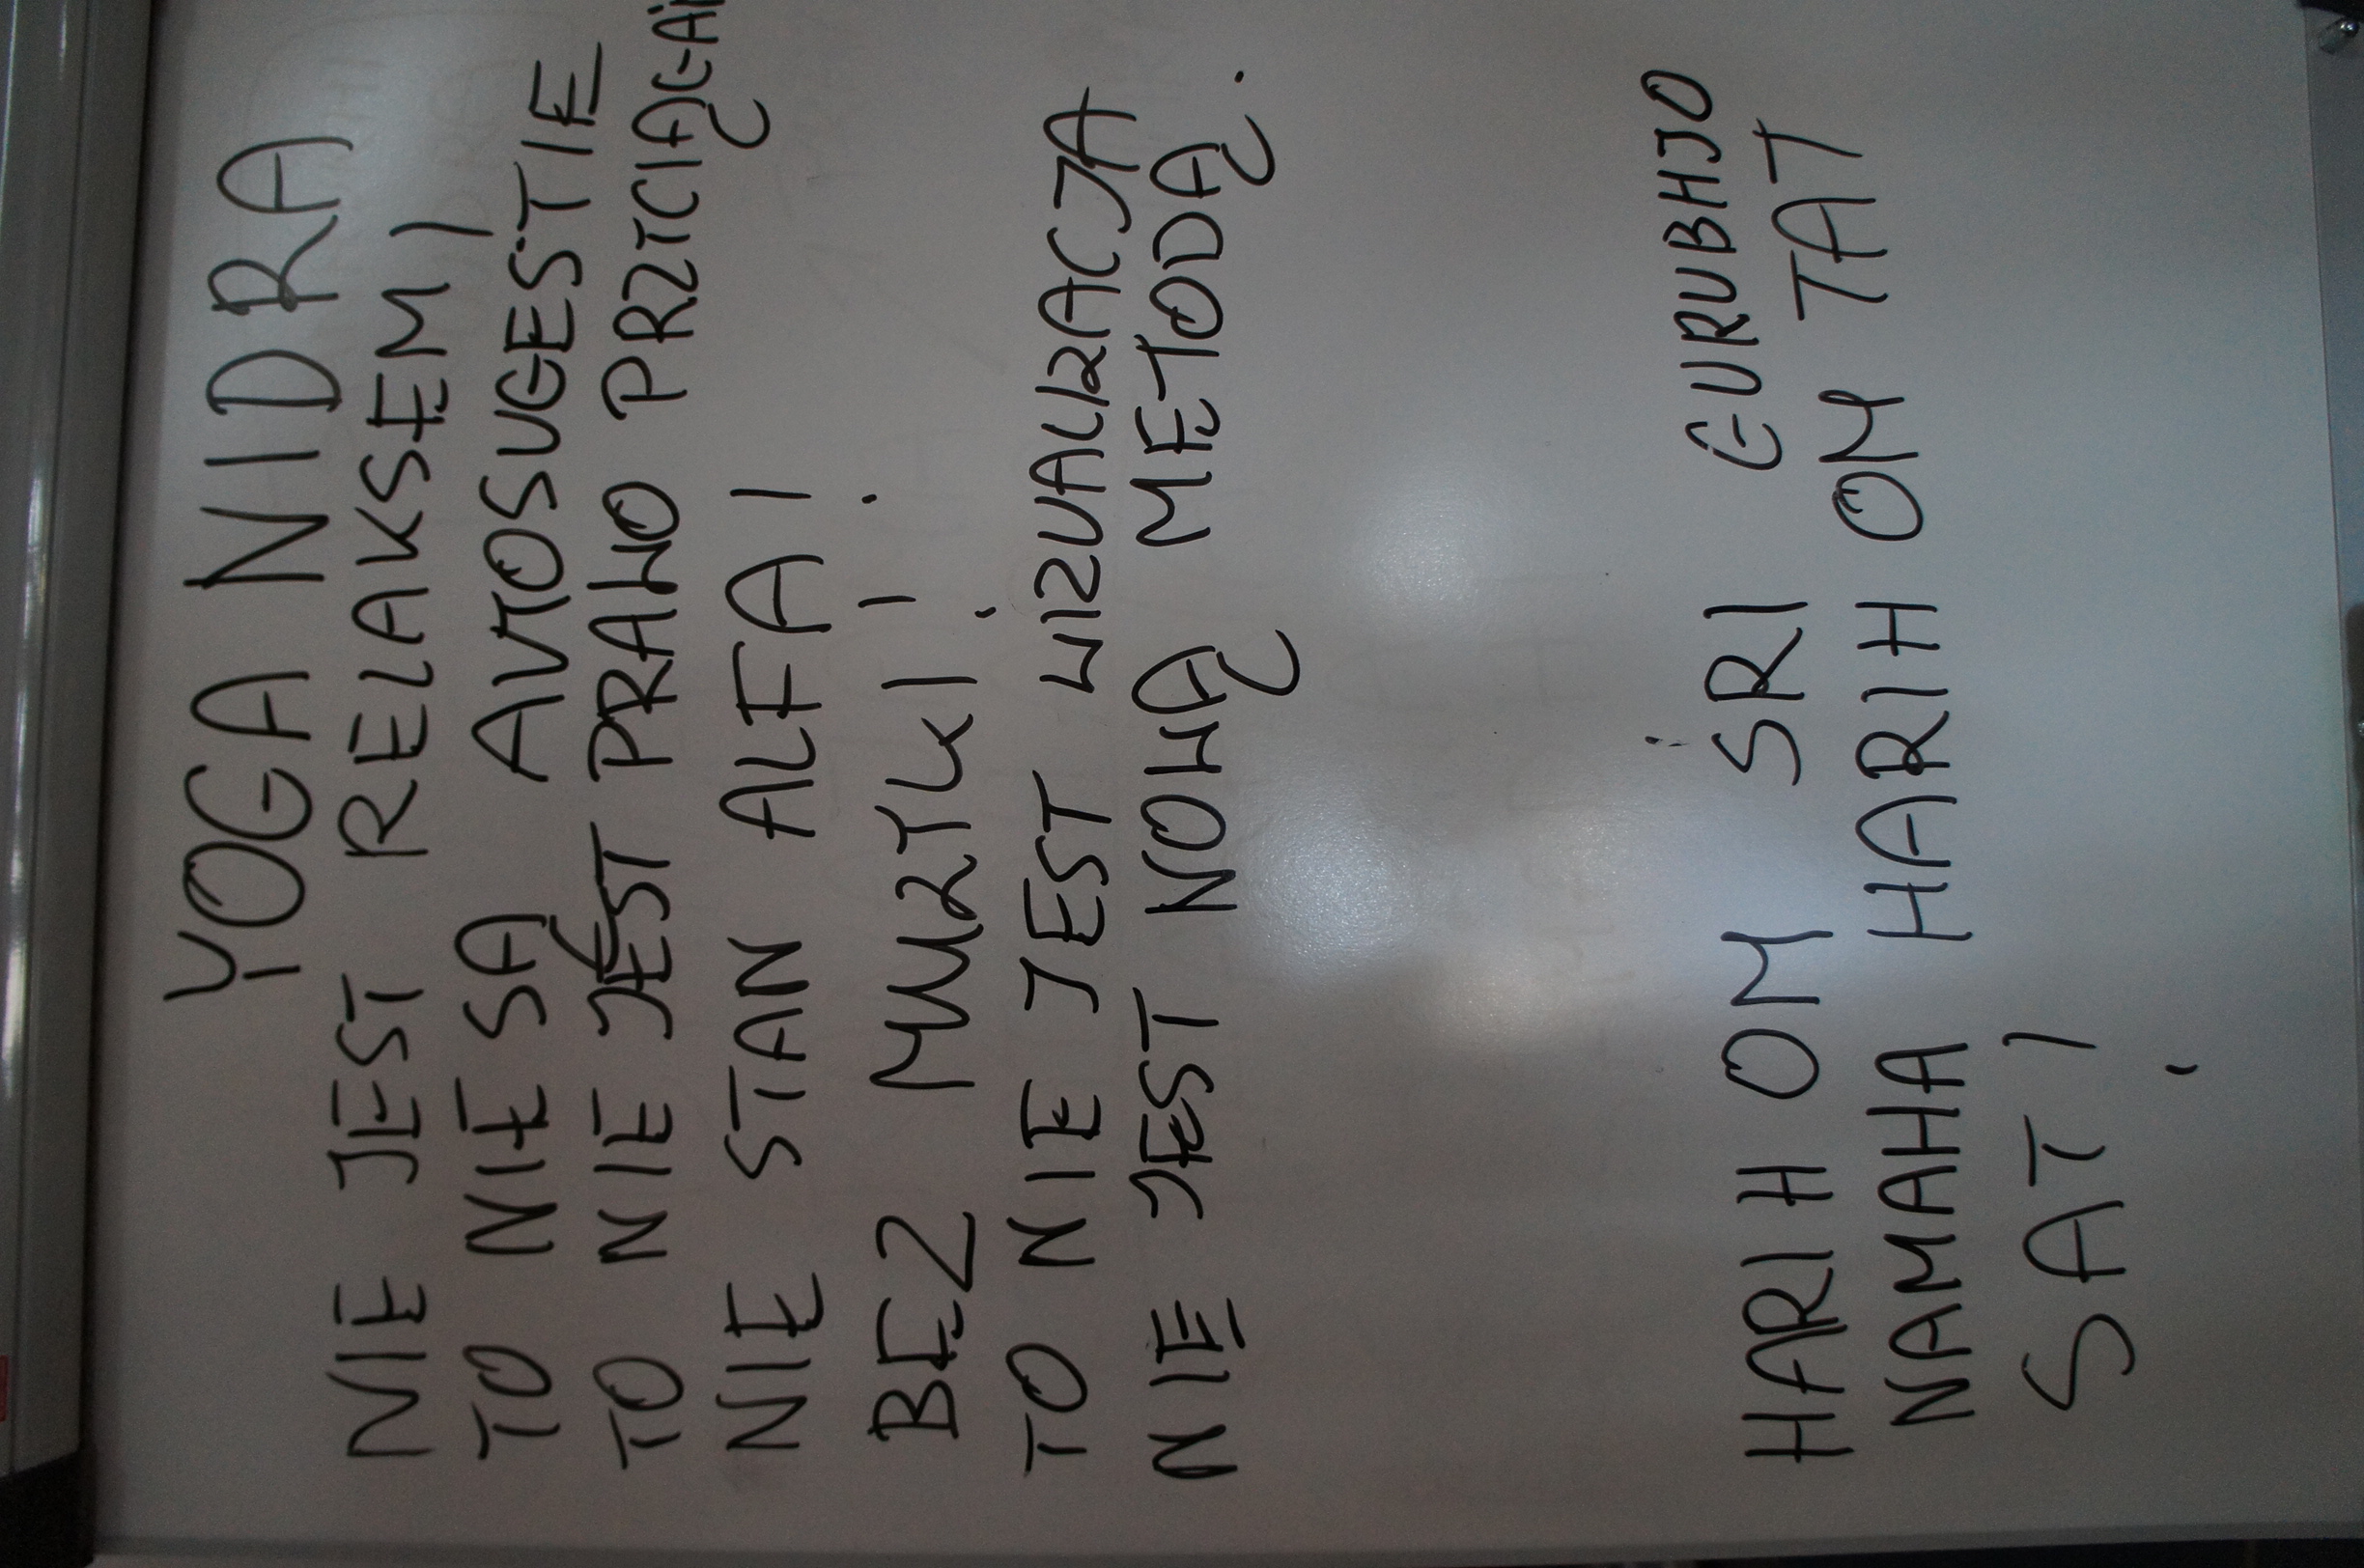 YOGA NIDRA
NIE JEST RELAKSEM!
TO NIE SĄ AUTOSUGESTIE
TO NIE JEST PRAWO PRZYCIĄGAN
NIE STAN ALFA I
BEZ MUZYKI!
TO NIE JEST WIZUALIZACJA
NIE JEST NOWĄ METODĄ.
HARIH OM ŚRI GURUBHJO
NAMAHA HARIH OM TAT
SAT!